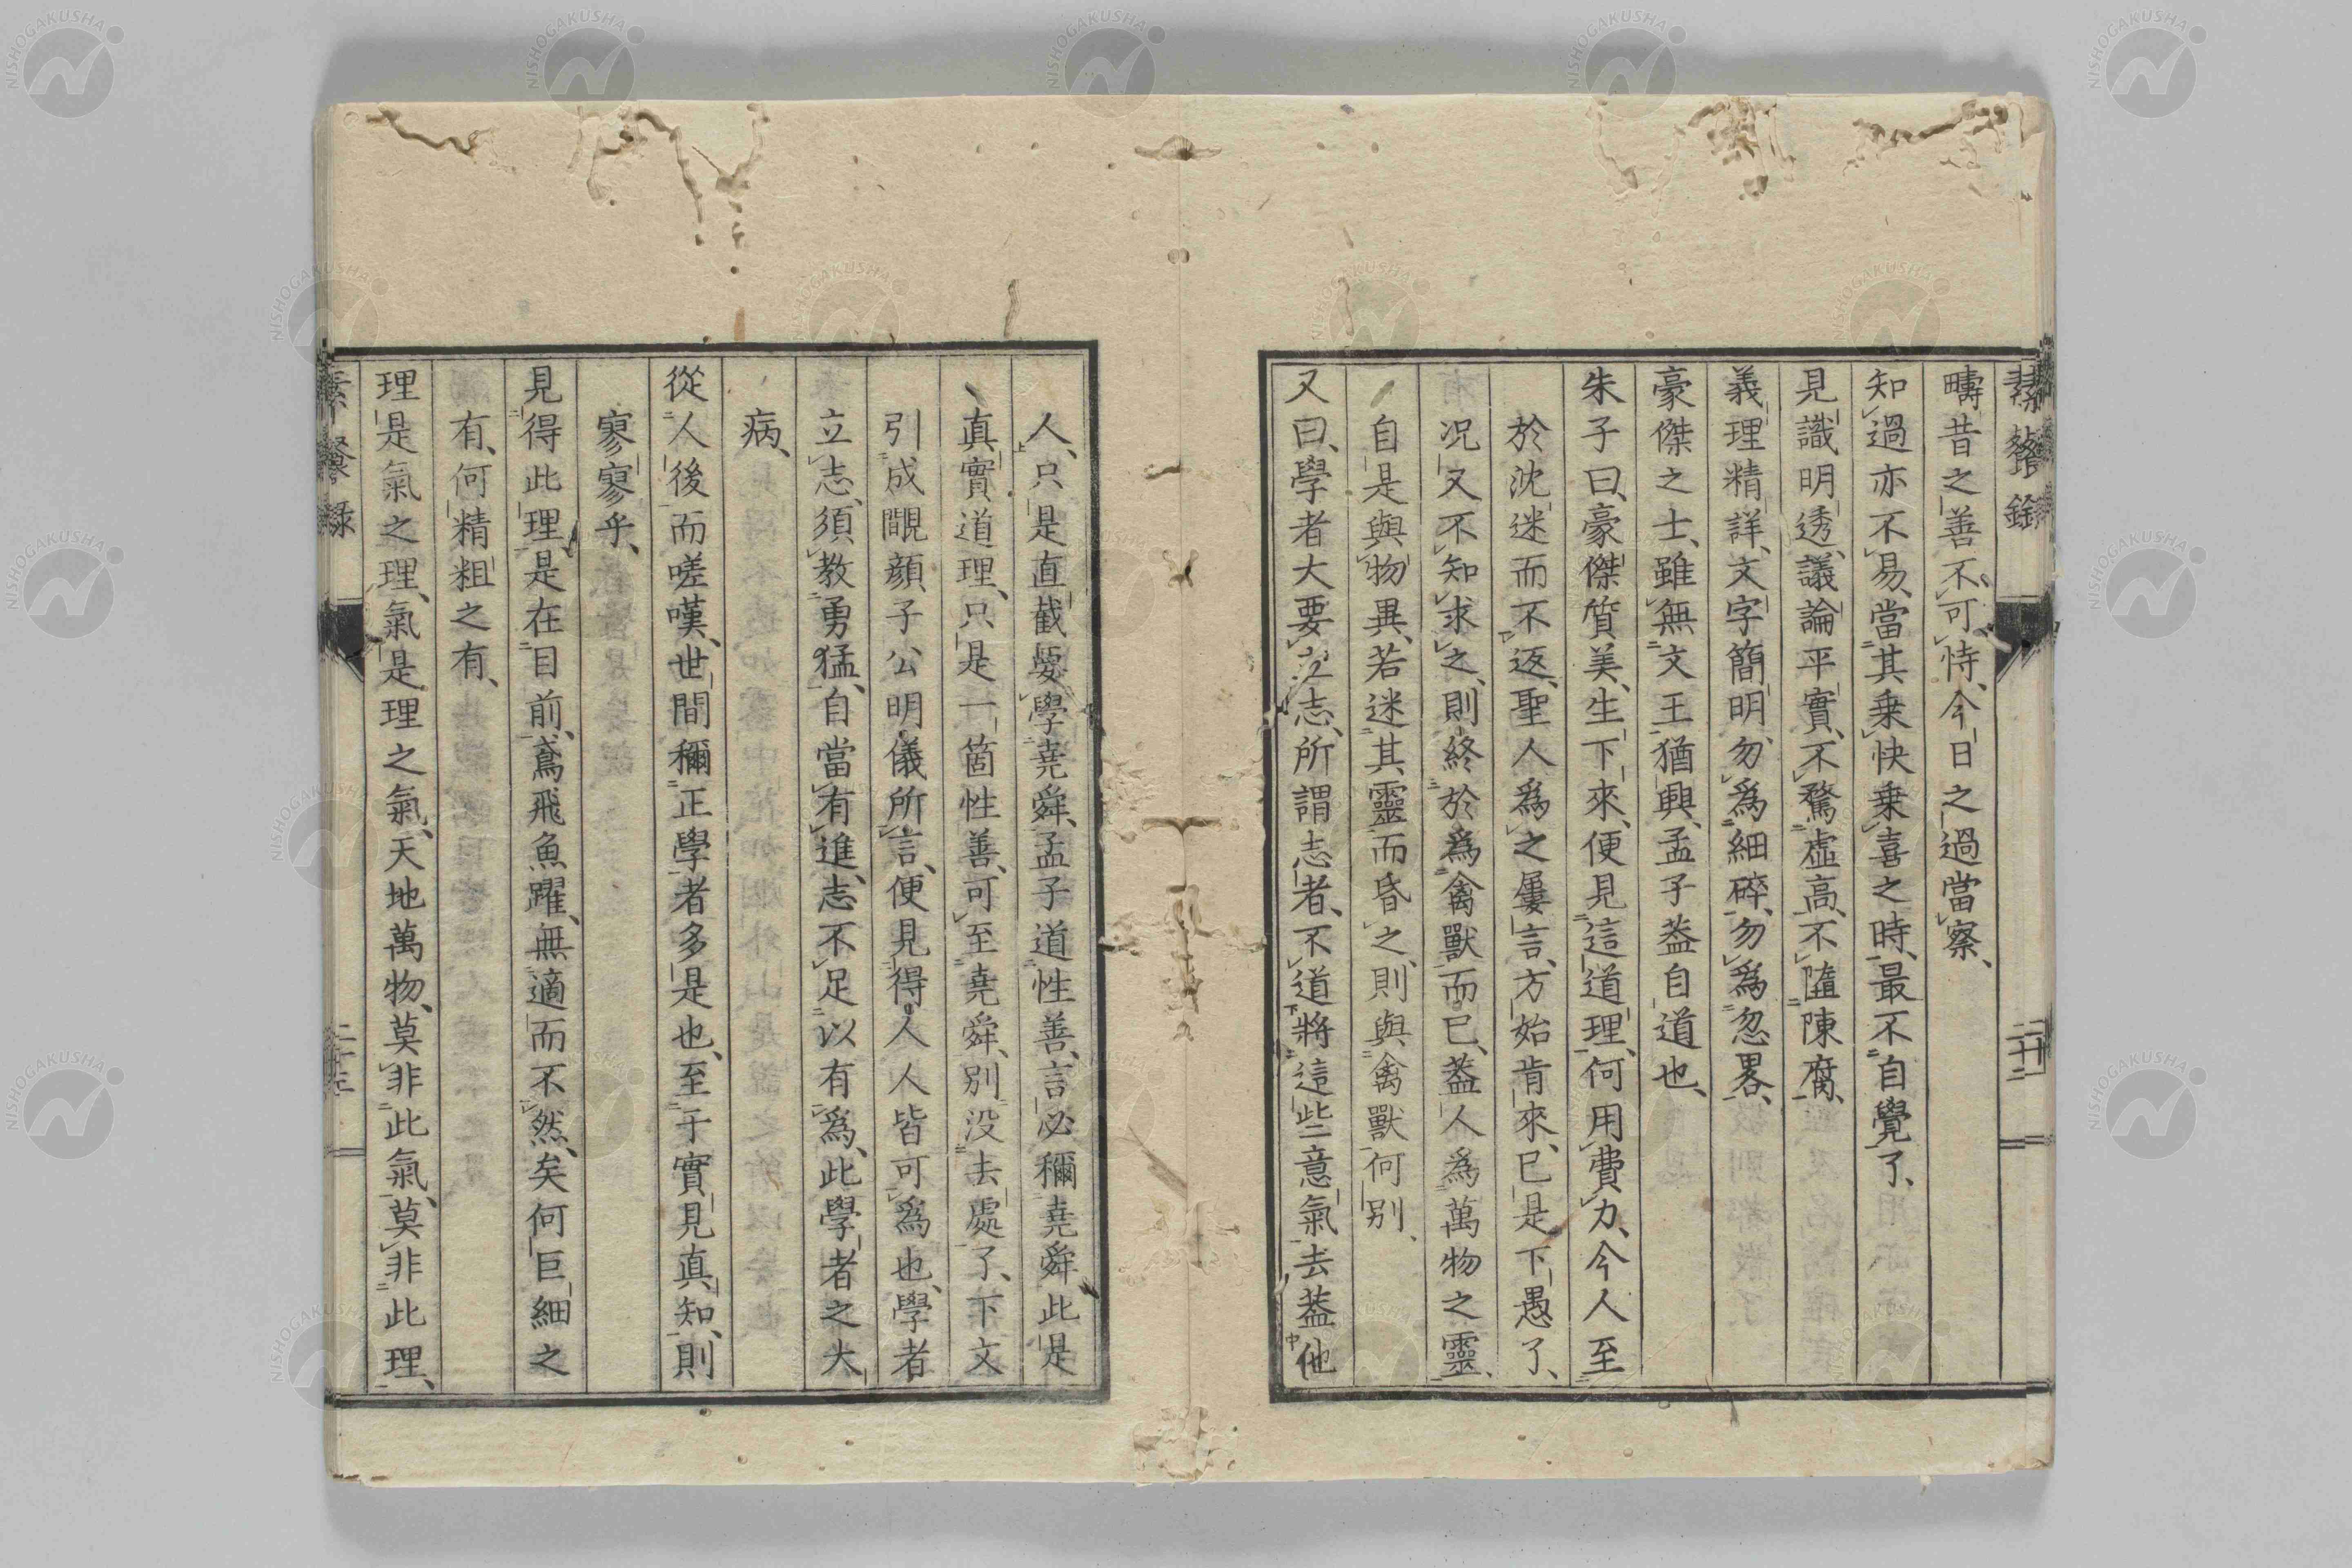 疇昔之善不可恃、今日之過當察、
知過亦不易、當其乗快乗喜之時、最不自覺了、
見識明透、議論平實、不騖虛高、不隨陳腐、
義理精詳、文字簡明、勿爲細碎、勿爲忽畧、
豪傑之士、雖無文王猶興、孟子葢自道也、
朱子曰、豪傑質美、生下來、便見這道理、何用費力、今人至
於沈迷而不返、聖人爲之屢言、方始肯來、已是下愚了、
况又不知求之、則終於爲禽獸而已、葢人爲萬物之靈、
自是與物異、若迷其靈而昏之、則與禽獸何别、
又曰、學者大要立志、所謂志者、不道將這些意氣去葢他
人、只是直截要學堯舜、孟子道性善、言必稱堯舜、此是
真實道理、只是一箇性善、可至堯舜、别没去處了、下文
引成覸顔子公明儀所言、便見得人人皆可爲也、學者
立志、須教勇猛、自當有進、志不足以有爲、此學者之大
病、
從人後而嗟嘆、世間稱正學者多是也、至于實見真知、則
寥寥乎、
見得此理是在目前、鳶飛魚躍、無適而不然、矣何巨細之
有、何精粗之有、
理是氣之理、氣是理之氣、天地萬物、莫非此氣、莫非此理、